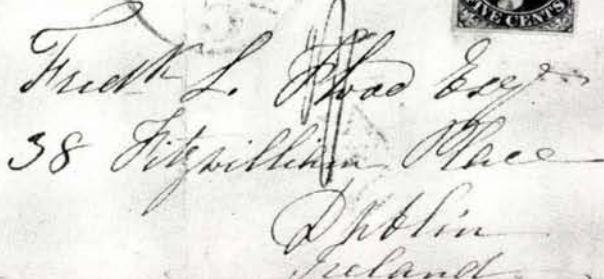 FIVE CENTS
Fredk L. Flood Esqr
38 Fitzwilliam Place
Dublin
Ireland